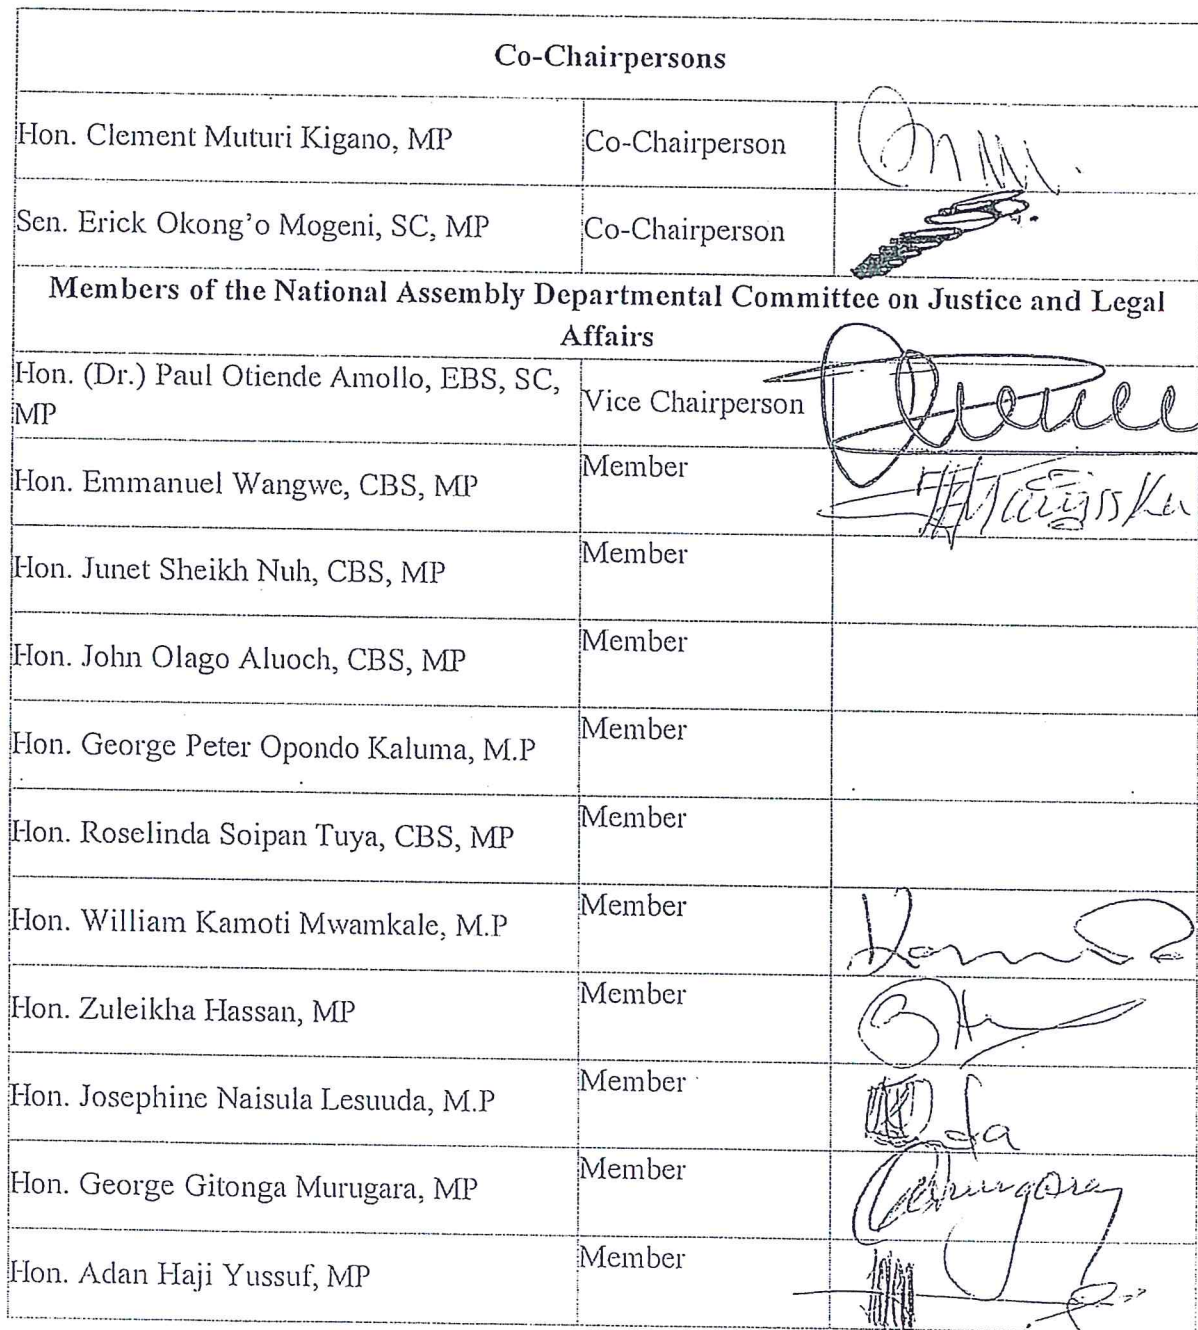 Co-Chairpersons
Hon. Clement Muturi Kigano, MP Co-Chairperson
Sen. Erick Okong'o Mogeni, SC, MP Co-Chairperson
Members of the National Assembly Departmental Committee on Justice and Legal
Affairs
Hon. (Dr.) Paul Otiende Amollo, EBS, SC,
MP Vice Chairperson
Hon. Emmanuel Wangwe, CBS, MP Member
Hon. Junet Sheikh Nuh, CBS, MP Member
Hon. John Olago Aluoch, CBS, MP Member
Hon. George Peter Opondo Kaluma, M.P Member
Hon. Roselinda Soipan Tuya, CBS, MP Member
Hon. William Kamoti Mwamkale, M.P Member
Hon. Zuleikha Hassan, MP Member
Hon. Josephine Naisula Lesuuda, M.P Member
Hon. George Gitonga Murugara, MP Member
Hon. Adan Haji Yussuf, MP Member